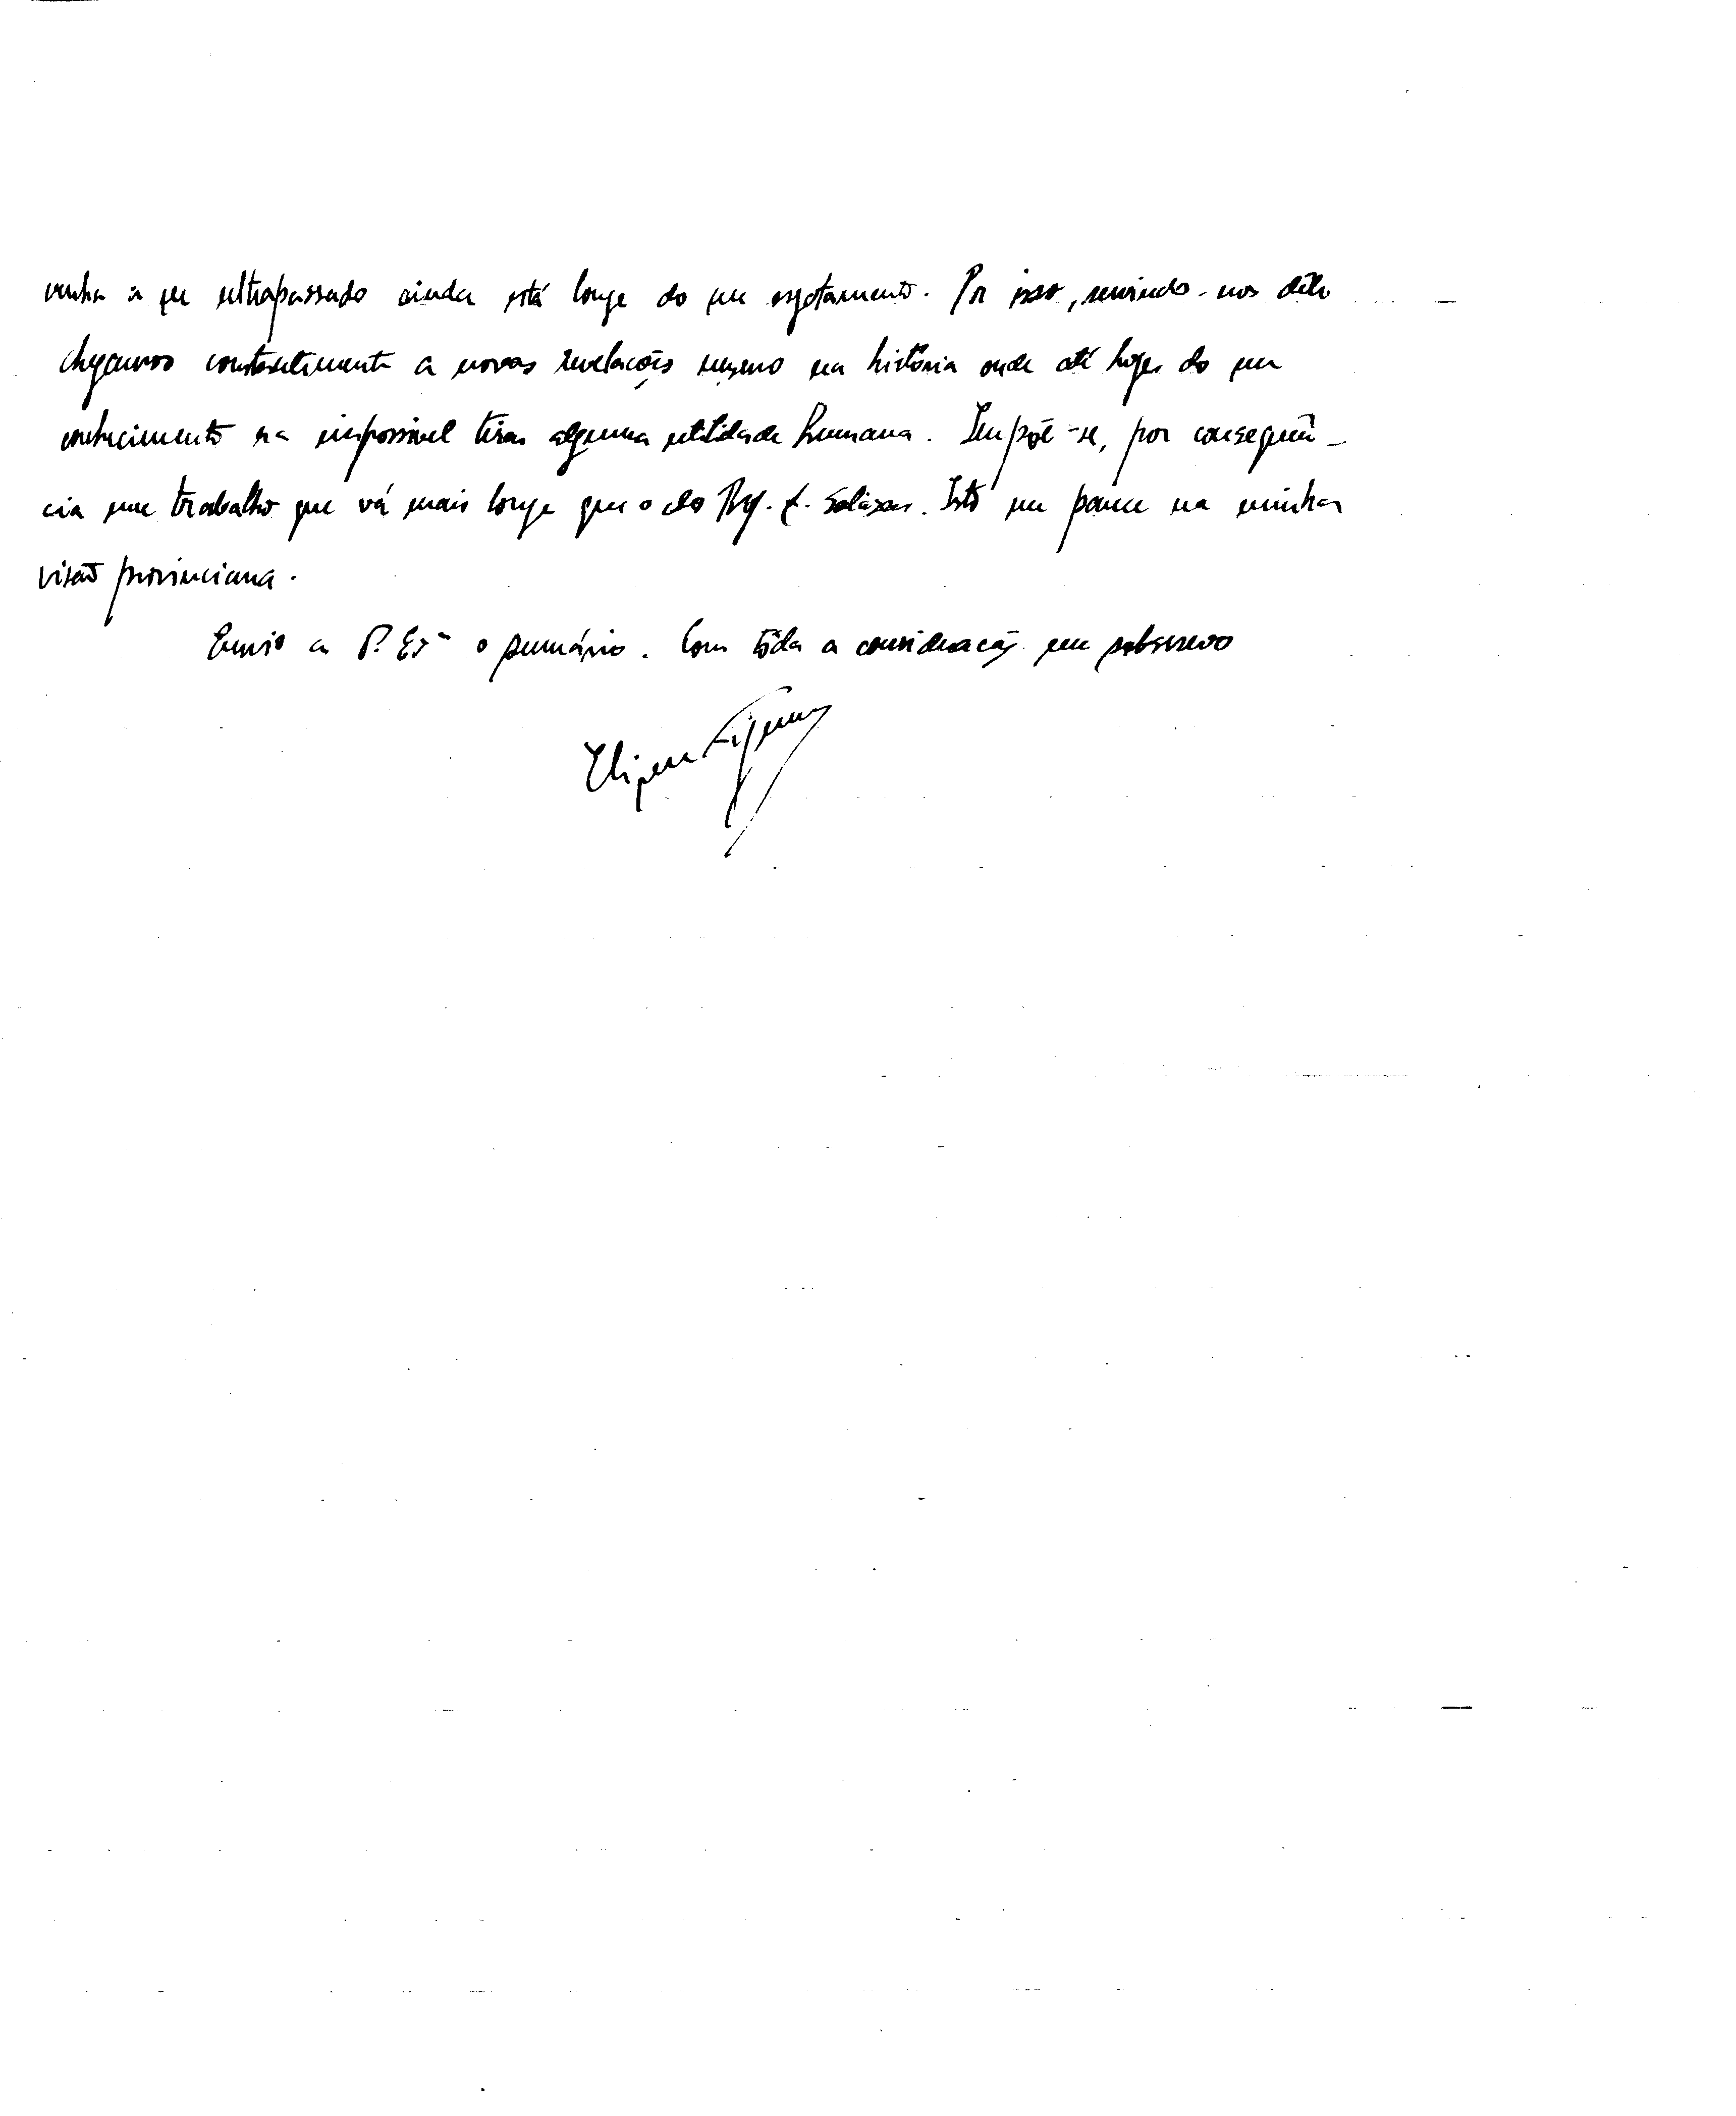 venha a ser ultrapassado ainda está longe do seu esgotamento. Por isso, servindo-nos dêle
chegamos constantemente a novas revelações mesmo na história onde até hoje do seu
conhecimento era impossível tirar alguma utilidade humana. Impõe-se, por consequên-
cia um trabalho que vá mais longe que o do Prof. A. Salazar. Isto me parece na minha
visão provinciana.
Envio a V. Exª o sumário. Com tôda a consideração me subscrevo